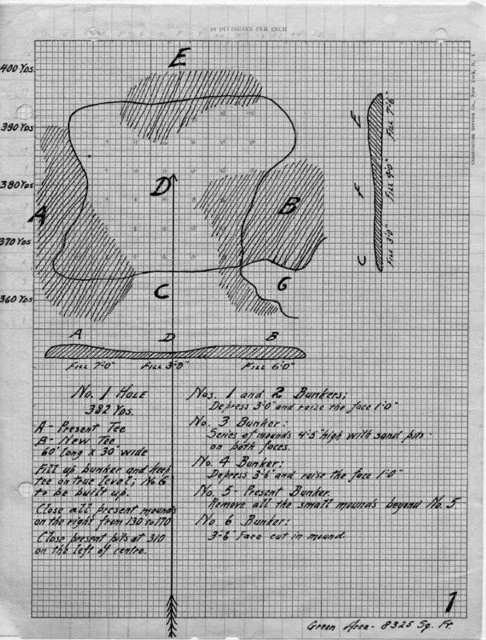 10 DIVISIONS PER INCH
400 Yds.
390 Yds.
380 Yds
370 Yds
360 Yds
E
D
A
B
C
6
E
F
C
Fill 7'-6"
Fill 4'-0"
Fill 3'0"
A
D
B
Fill 7'-0"
Fill 3'-0"
Fill 6'0"
No. 1 Hole
382 Yds.
A - Present Tee
B - New Tee
60' long x 30' wide
Fill up bunker and keep
tee on true level; No 6
to be built up.
Close all present mounds
on the right from 130 to 170
Close present pits at 310
on the left of centre.
Nos. 1 and 2 Bunkers;
Depress 3'0" and raise the face 1'0"
No. 3 Bunker:
Series of mounds 4'-5' high with sand pits
on both faces.
No. 4 Bunker:
Depress 3'6" and raise the face 1'0"
No. 5- Present Bunker
Remove all the small mounds beyond No. 5
No. 6 Bunker:
3'-6" face cut in mound.
1
Green Area - 8325 Sq. Ft